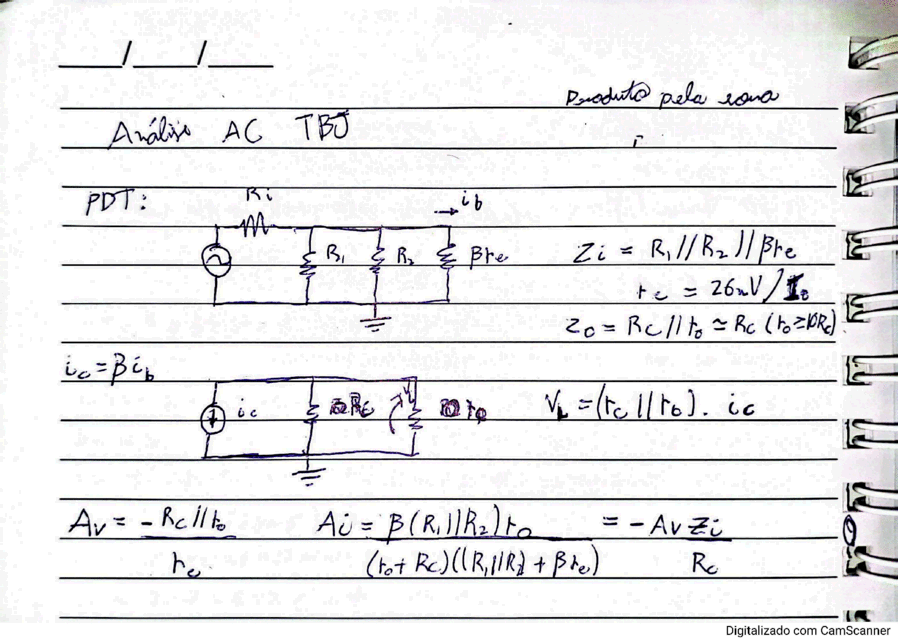 ___/___/___
Produto pela soma
Análise AC TBJ
PDT:
Ri
ib
R1
R2
βre
Zi = R1//R2//βre
re = 26mV/I
Zo = Rc//ro ≃ Rc (ro≥10Rc)
ic = βib
ic
Rc
ro
VL = (rc//ro). ic
Av = -Rc//ro
re
Ai = β(R1//R2)ro
(ro+Rc)((R1//R2 + βre)
= -Av Zi
Rc
Digitalizado com CamScanner